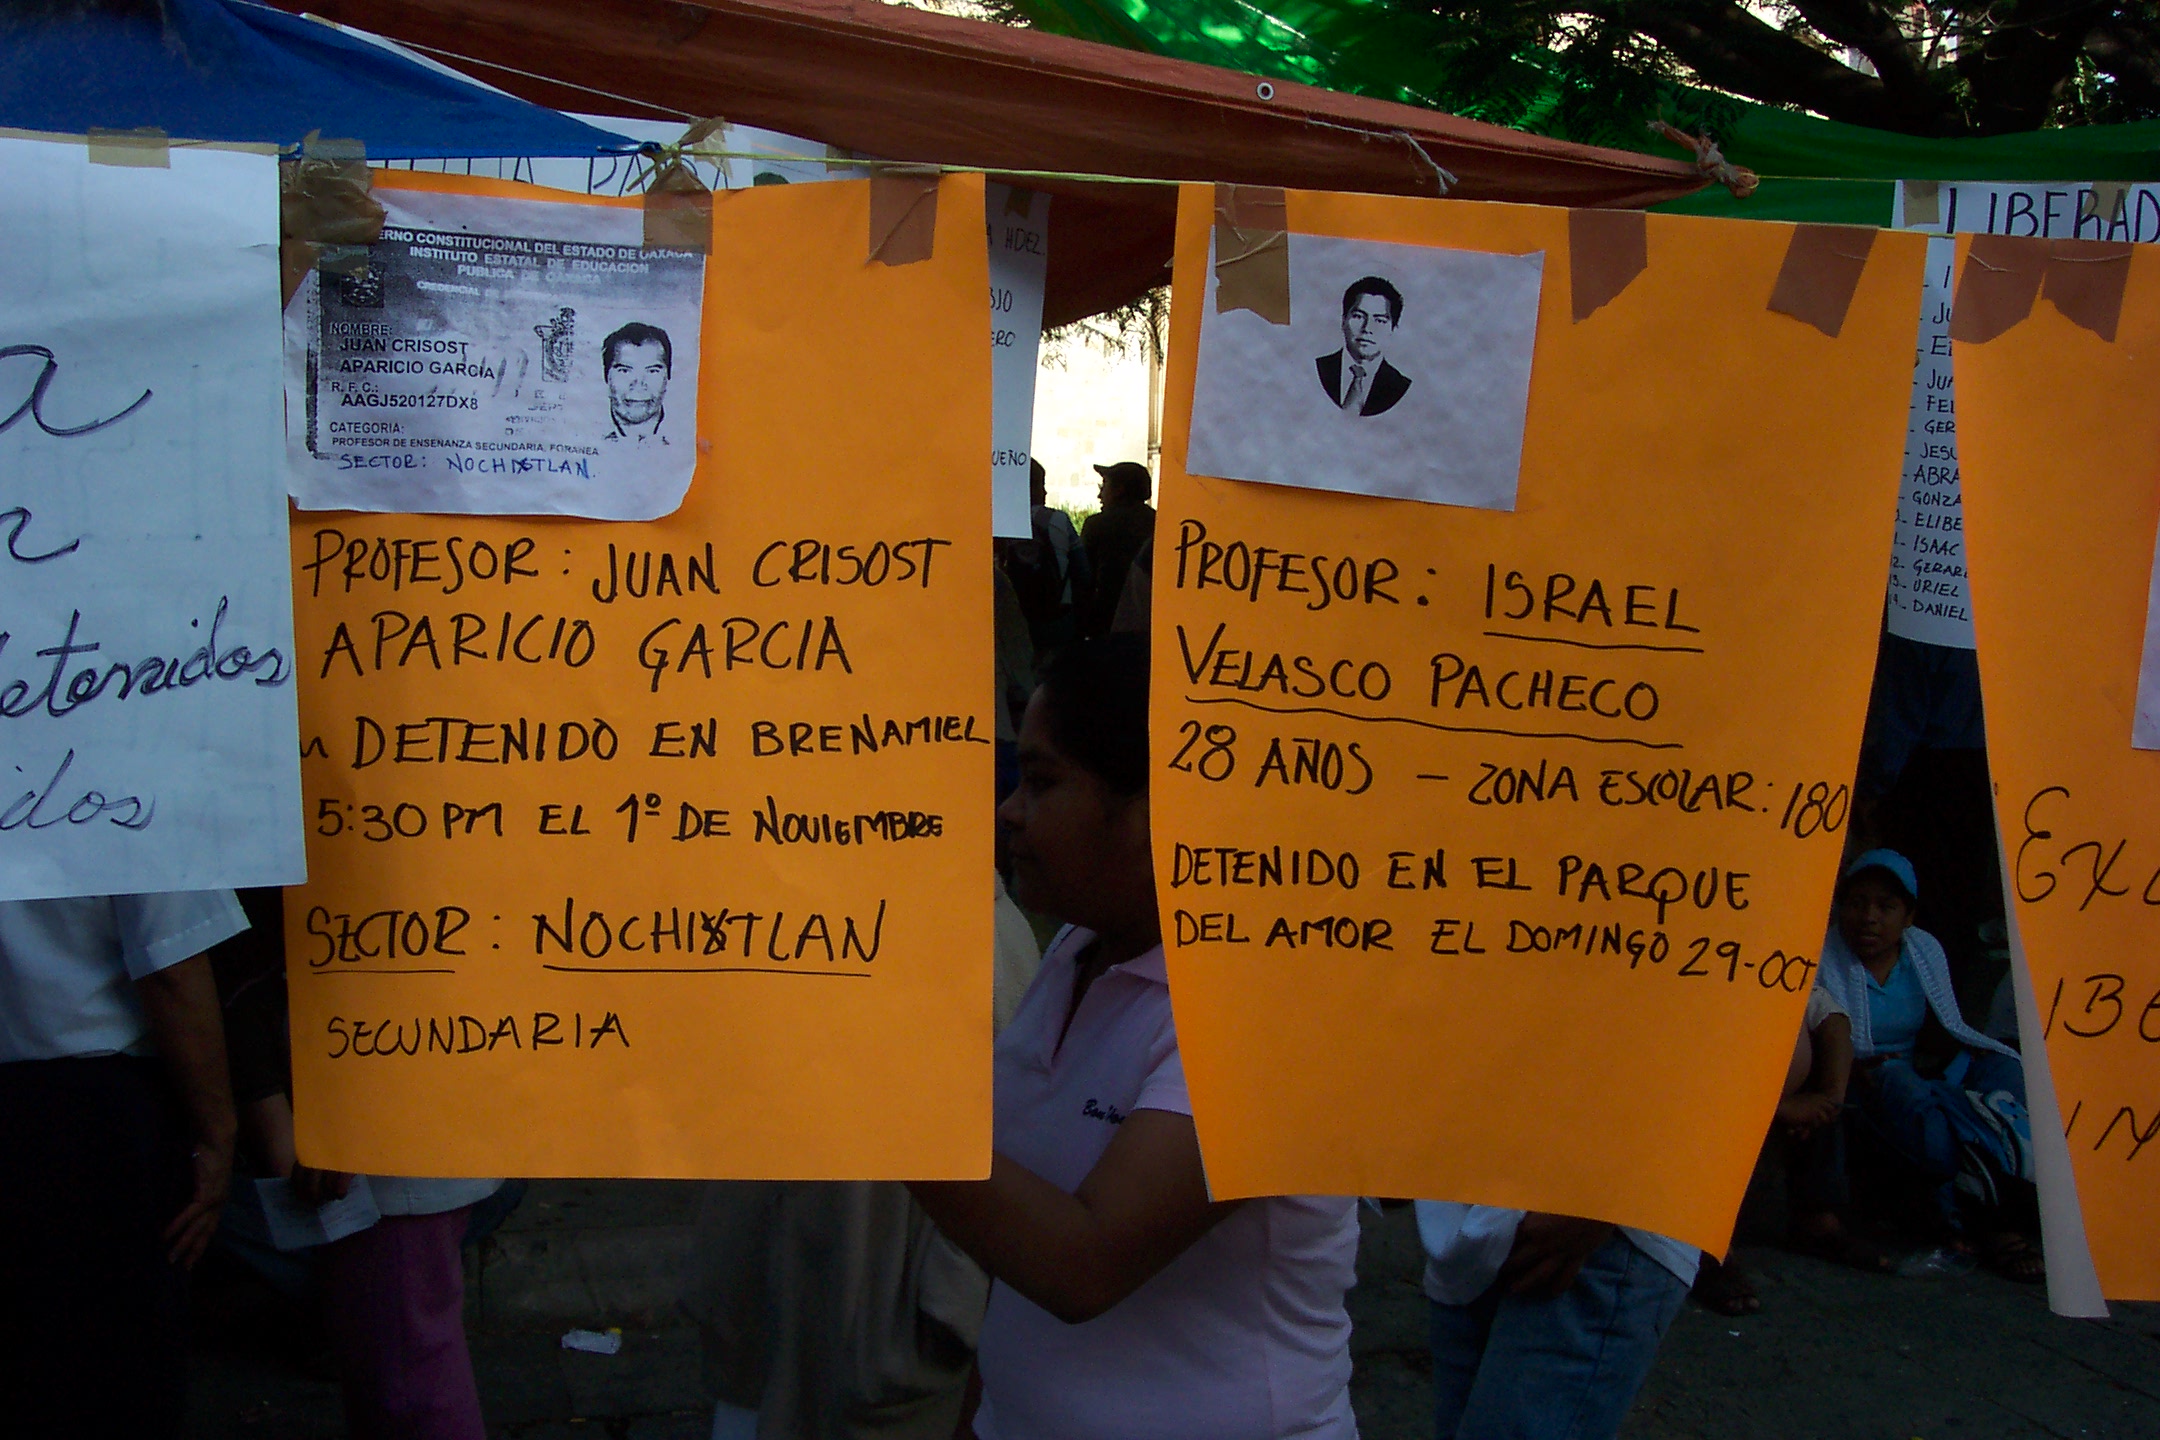 a
etenidos
idos
ERNO CONSTITUCIONAL DEL ESTADO DE OAXACA
INSTITUTO ESTATAL DE EDUCACION
PUBLICA DE OAXACA
CREDENCIAL
NOMBRE:
JUAN CRISOST
APARICIO GARCIA
R.F.C.:
AAGJ520127DX8
CATEGORIA:
PROFESOR DE ENSEÑANZA SECUNDARIA, FORANEA
SECTOR: NOCHIXTLAN.
PROFESOR: JUAN CRISOST
APARICIO GARCIA
DETENIDO EN BRENAMIEL
5:30 PM EL 1º DE NOVIEMBRE
SECTOR: NOCHIXTLAN
SECUNDARIA
HDEZ
BJO
ERO
UEÑO
PROFESOR: ISRAEL
VELASCO PACHECO
28 AÑOS - ZONA ESCOLAR: 180
DETENIDO EN EL PARQUE
DEL AMOR EL DOMINGO 29-OCT
LIBERAD
JU
JUA
FEL
GER
JESU
ABRA
GONZA
ELIBE
ISAAC
12.- GERAR
13.- URIEL
14.- DANIEL
EX
IBE
IN